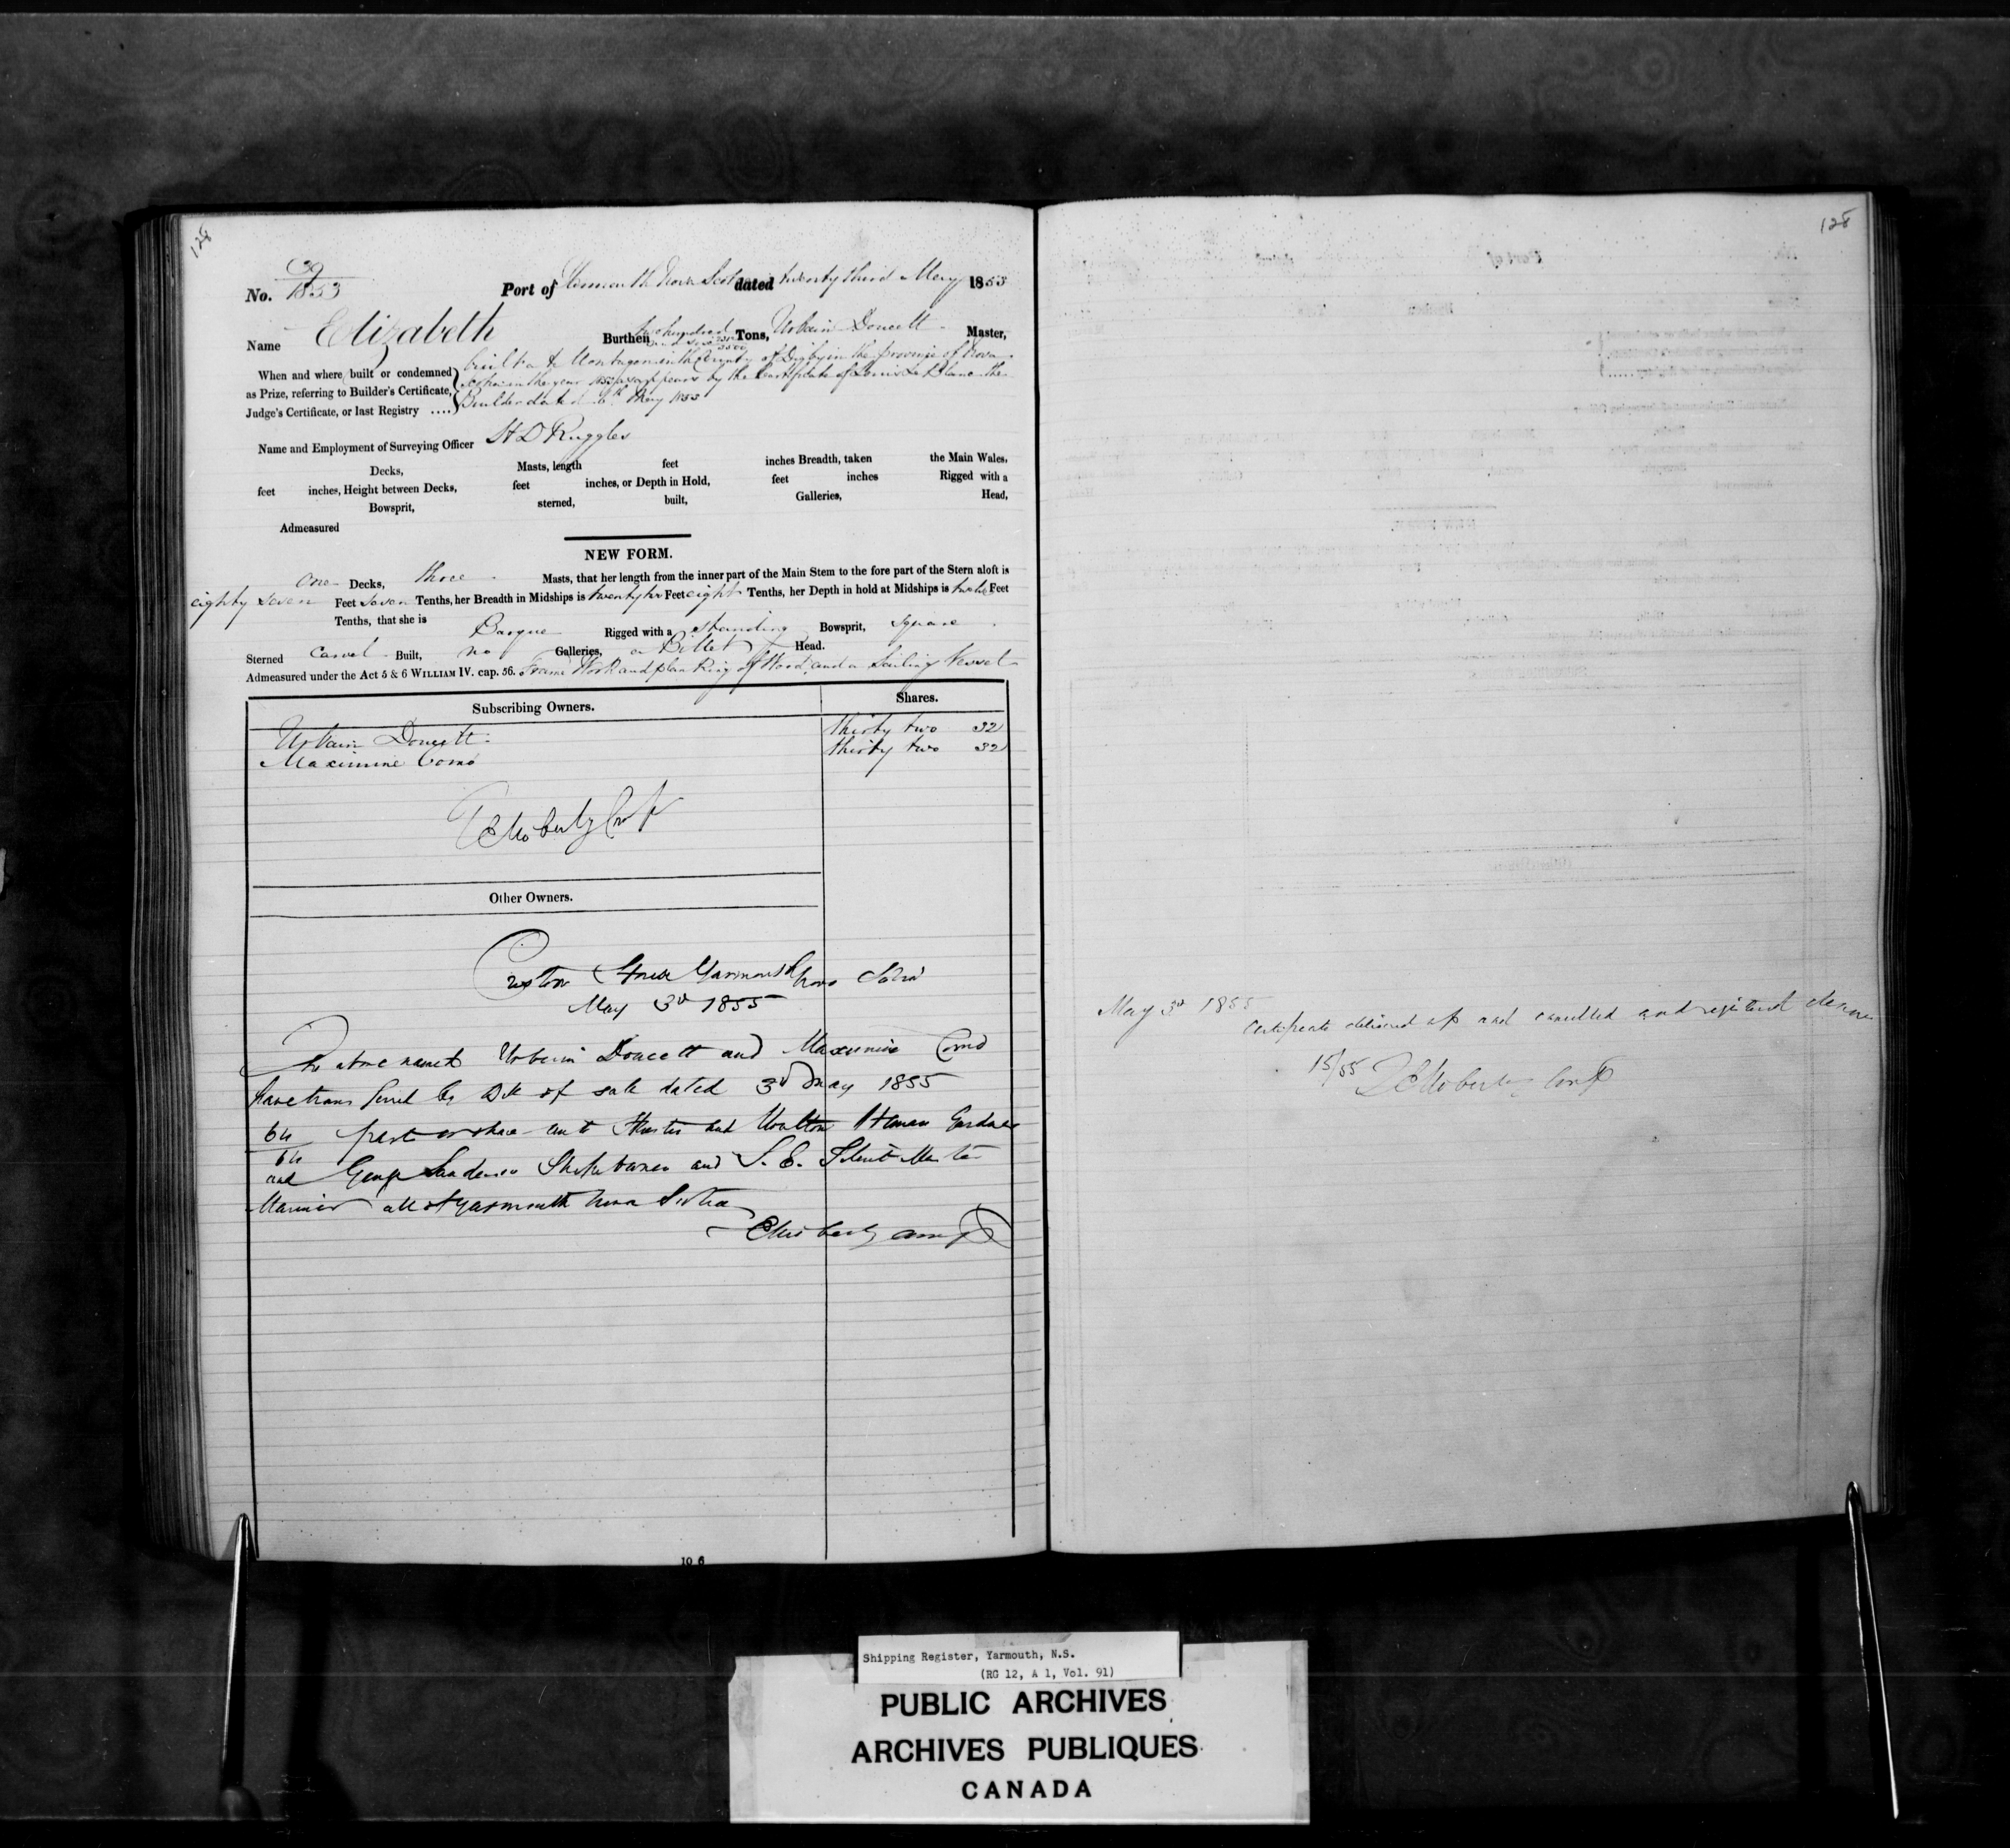 128
No. 9
1853
Port of Yarmouth Nova Scot dated twenty third May 1853
Name Elizabeth Burthen two hundred Tons, Urbain Doucett Master,
When and where built or condemned
as Prize, referring to Builder's Certificate,
Judge's Certificate, or last Registry ....
built at in the County of Digby in the province of Nova
Scotia in the year as appears by the Certificate of Louis Le Blanc the
Builder dated 6th May 1853
Name and Employment of Surveying Officer H D Ruggles
Decks, Masts, length feet inches Breadth, taken the Main Wales,
feet inches, Height between Decks, feet inches, or Depth in Hold, feet inches Rigged with a
Bowsprit, sterned, built, Galleries, Head,
Admeasured
NEW FORM.
One Decks, three Masts, that her length from the inner part of the Main Stem to the fore part of the Stern aloft is
eighty seven Feet seven Tenths, her Breadth in Midships is twenty two Feet eight Tenths, her Depth in hold at Midships is twelve Feet
Tenths, that she is Barque Rigged with a standing Bowsprit, square
Sterned Carvel Built, no Galleries, a Billet Head.
Admeasured under the Act 5 & 6 WILLIAM IV. cap. 56. Frame Work and planking of Wood and a Sailing Vessel
Subscribing Owners. Shares.
Urbain Doucett thirty two 32
Maximine Como thirty two 32
Other Owners.
Custom House Yarmouth Nova Scotia
May 3d 1855
The above named Urbain Doucett and Maximine Como
have transferred by Bill of sale dated 3d May 1855
64
64
part or share unto and Heman Gardner
and George Sanderson Shipowners and S. E. Master
Mariner all of Yarmouth Nova Scotia
10 6
128
May 3d 1855
Certificate delivered up and cancelled and registered denovo
15/55
Shipping Register, Yarmouth, N.S.
(RG 12, A 1, Vol. 91)
PUBLIC ARCHIVES
ARCHIVES PUBLIQUES
CANADA